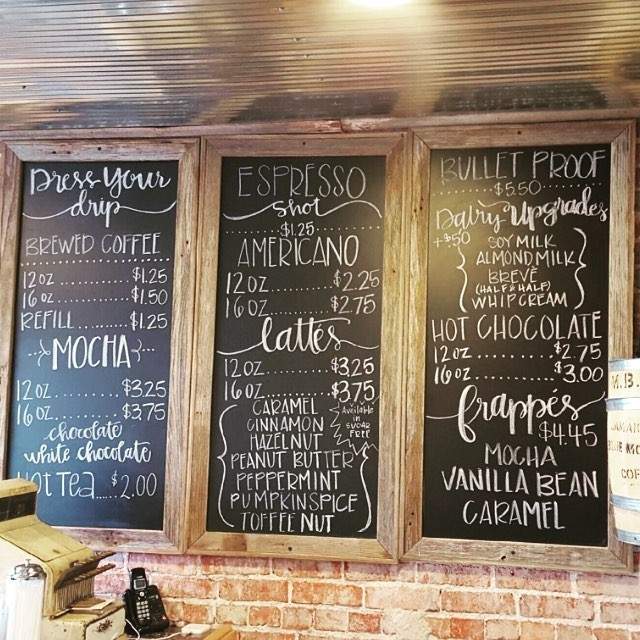 Dress Your
drip
BREWED COFFEE
12 OZ.......$1.25
16 OZ.......$1.50
REFILL.......$1.25
MOCHA
12 OZ.......$3.25
16 OZ.......$3.75
chocolate
white chocolate
HOT TEA....$2.00
ESPRESSO
shot
$1.25
AMERICANO
12 OZ.......$2.25
16 OZ.......$2.75
lattes
12 OZ.......$3.25
16 OZ.......$3.75
CARAMEL
CINNAMON
HAZELNUT
PEANUT BUTTER
PEPPERMINT
PUMPKIN SPICE
TOFFEE NUT
Available
in
SUGAR
FREE
BULLET PROOF
$5.50
Dairy Upgrades
+$.50
SOY MILK
ALMOND MILK
BREVÉ
(HALF & HALF)
WHIP CREAM
HOT CHOCOLATE
12 OZ.......$2.75
16 OZ.......$3.00
frappés
$4.45
MOCHA
VANILLA BEAN
CARAMEL
M.B.